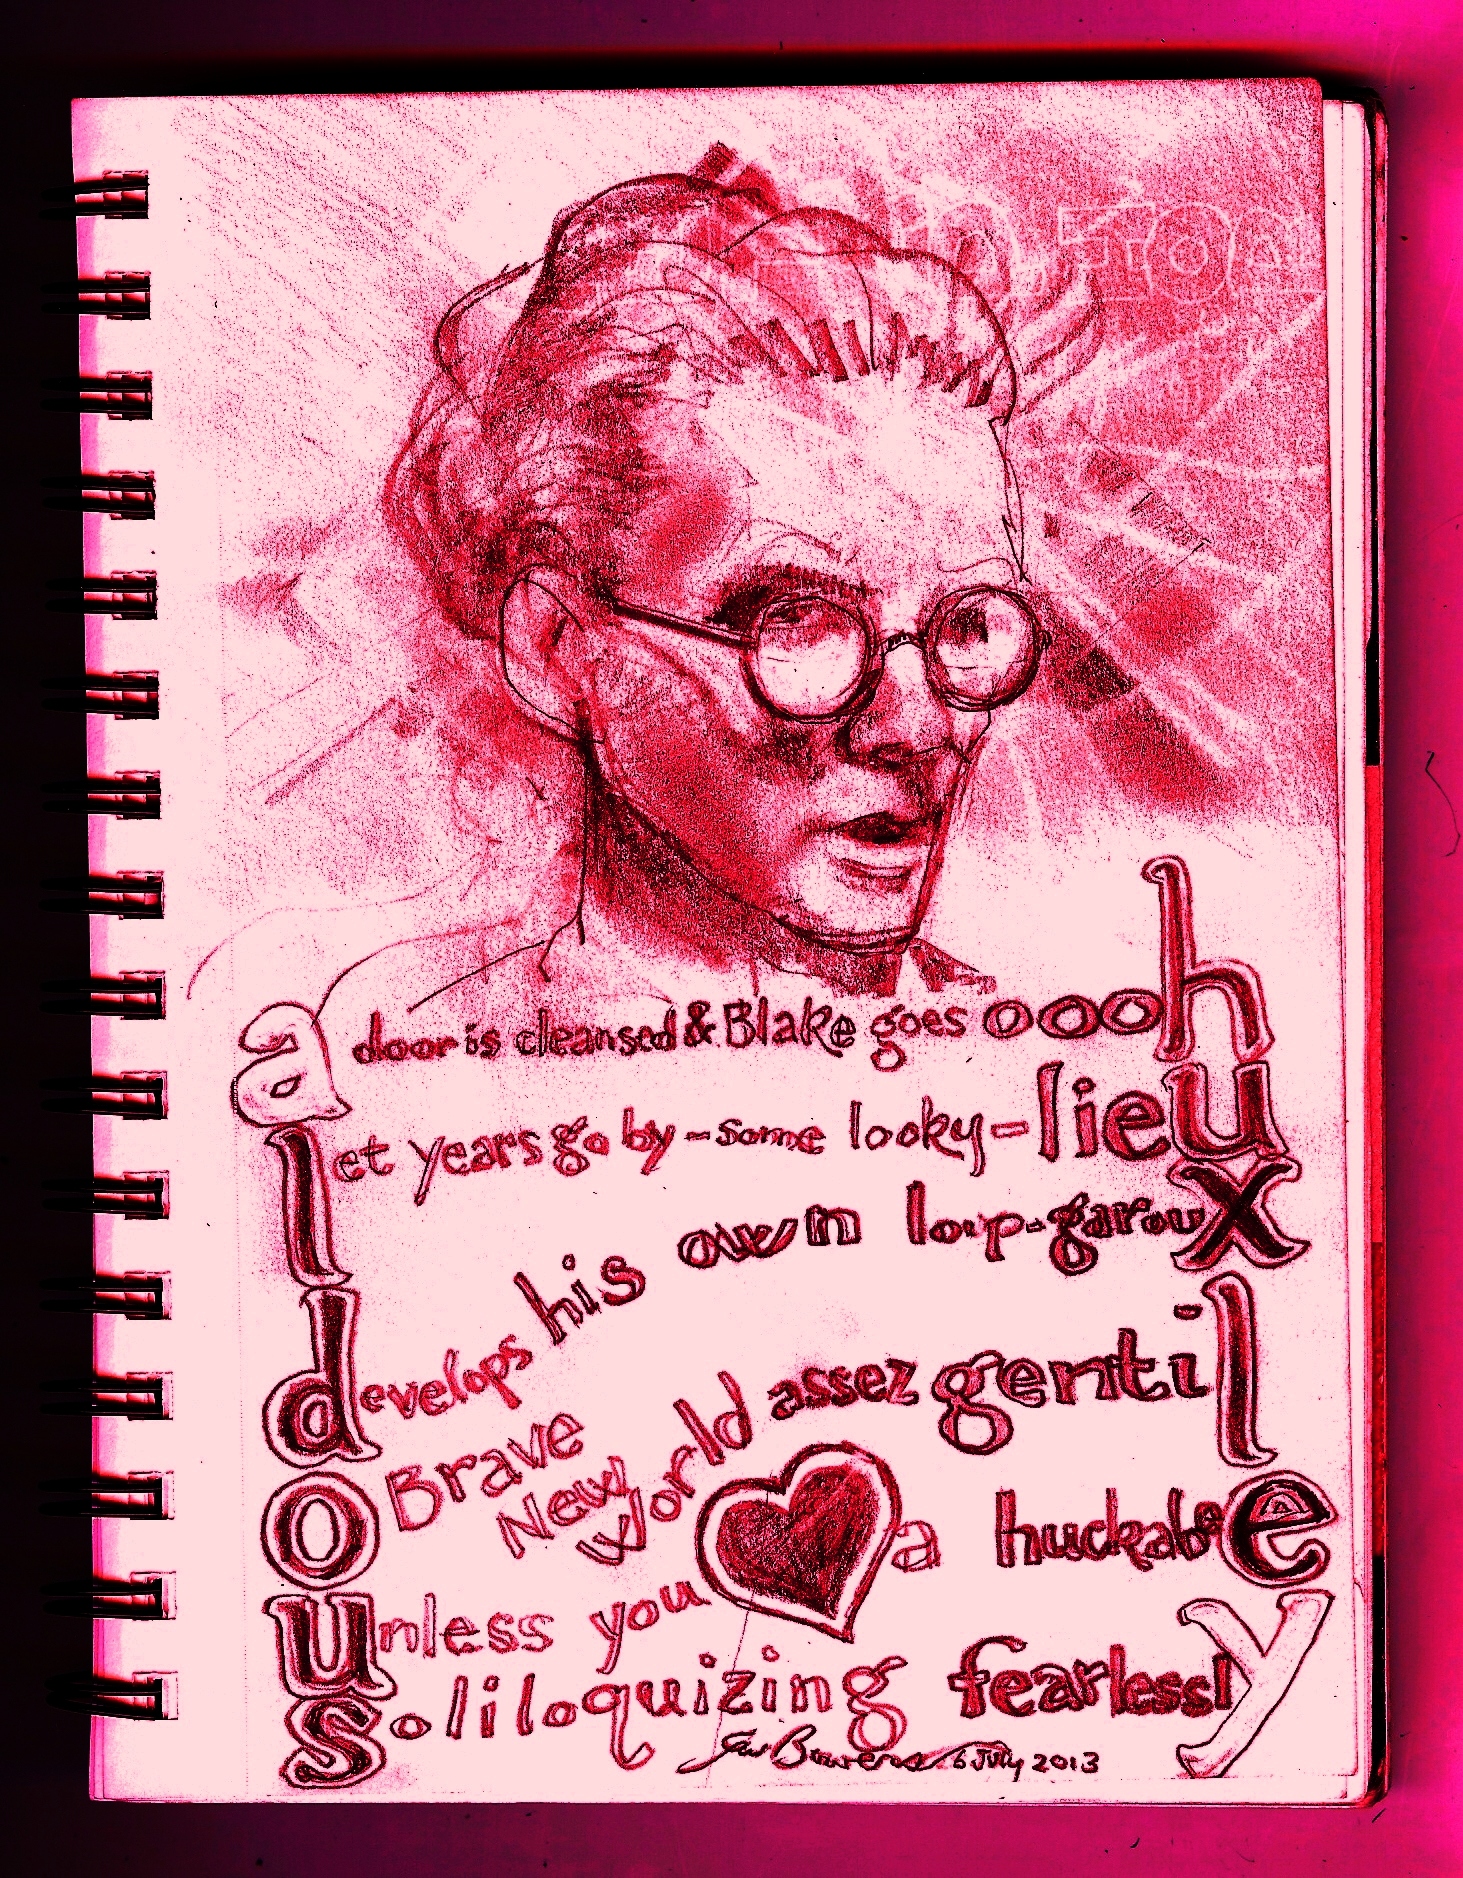 a door is cleansed & Blake goes oooh
let years go by - some looky-lieu
develops his own loup-garoux
O Brave New World assez gentil
unless you ♥ a huckabee
Soliloquizing fearlessly
Bowens 6 July 2013